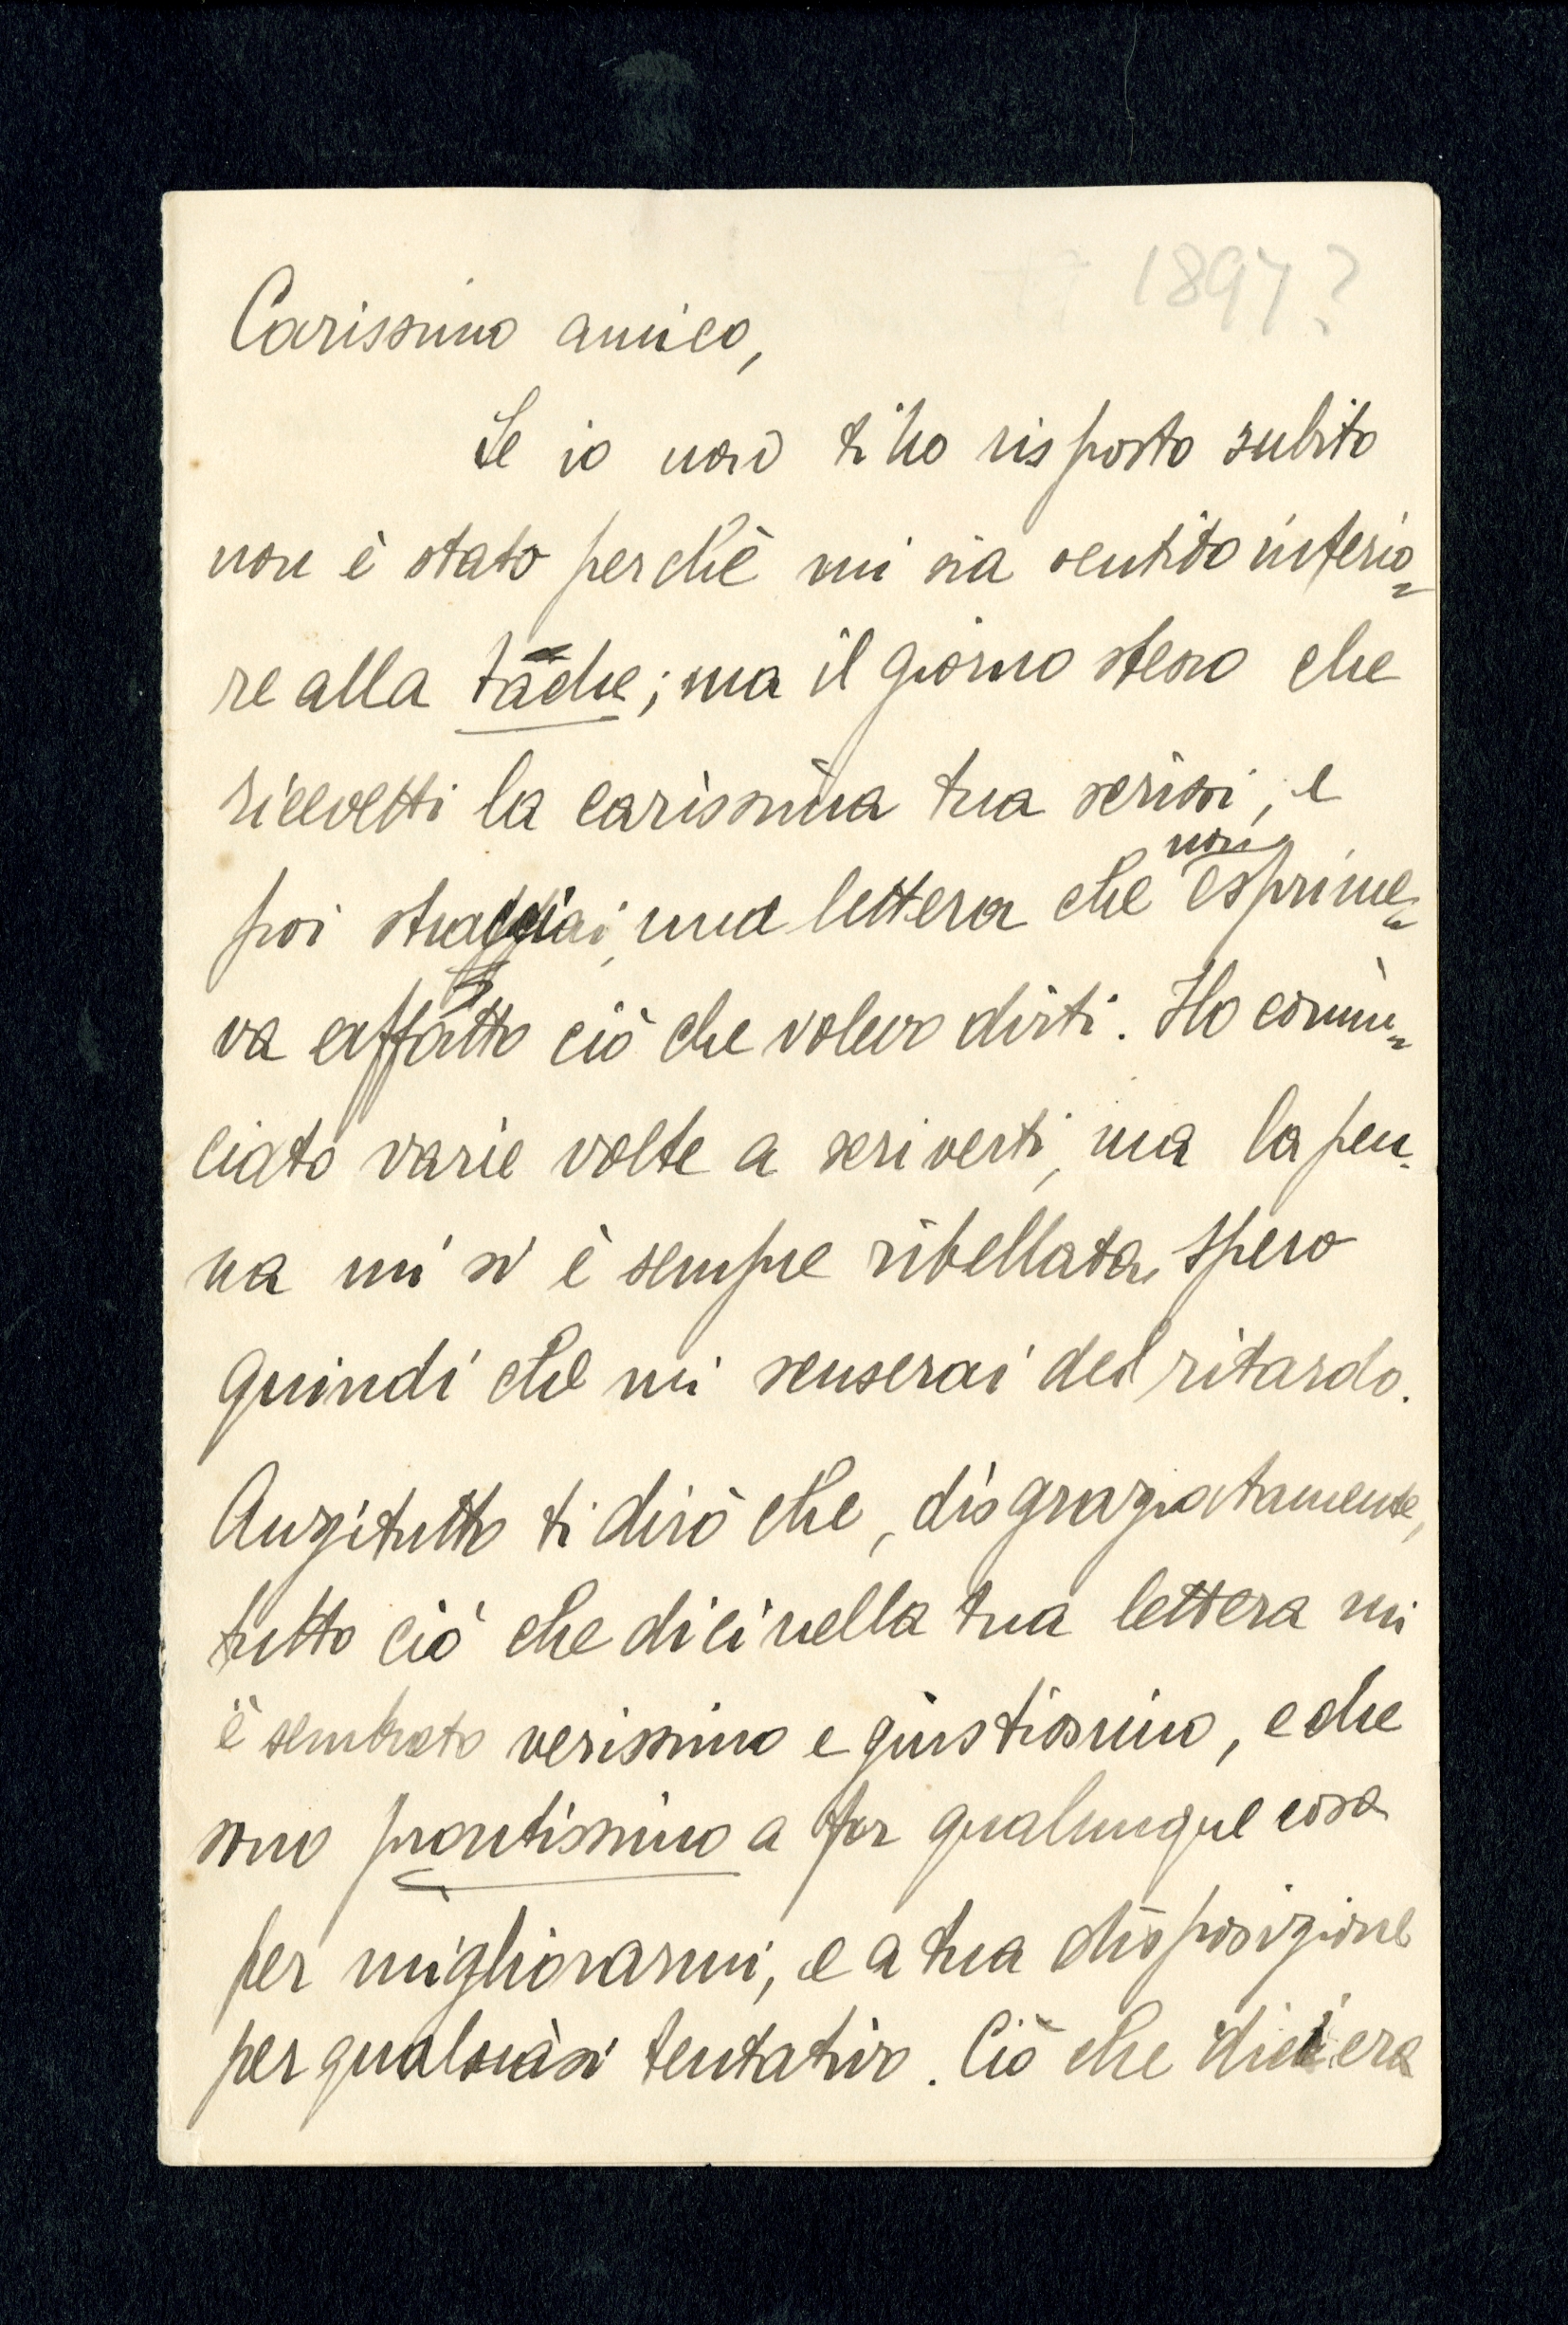 1897?
Carissimo amico,
Se io non ti ho risposto subito
non è stato perchè mi sia sentito inferio=
re alla tâche; ma il giorno stesso che
ricevetti la carissima tua scrissi, e
poi stracciai, una lettera che non esprime=
va affatto ciò che volevo dirti. Ho comin=
ciato varie volte a scriverti, ma la pen-
na mi si è sempre ribellata, spero
quindi che mi scuserai del ritardo.
Anzitutto ti dirò che, disgraziatamente,
tutto ciò che dici nella tua lettera mi
è sembrato verissimo e giustissimo, e che
sono prontissimo a far qualunque cosa
per migliorarmi, e a tua disposizione
per qualsiasi tentativo. Ciò che dici era